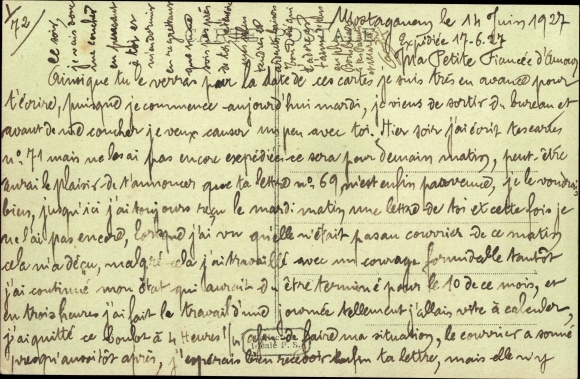 1/72
Mostaganem le 14 Juin 1927
Expédiée 17-6-27
Ce soir,
je vais donc
me coucher
en pensant
à toi et
m'endormir
Ma Petite Fiancée d'Amour
Ainsi que tu verras par la date de ces cartes je suis très en avance pour
t'écrire, puisque je commence aujourd'hui mardi, je viens de sortir du bureau et
avant de me coucher je veux causer un peu avec toi. Hier soir j'ai écrit tes cartes
n° 71 mais ne les ai pas encore expédiées ce sera pour demain matin, peut-être
aurai le plaisir de t'annoncer que ta lettre n° 69 m'est enfin parvenue, je le voudrais
bien, jusqu'ici j'ai toujours reçu le mardi matin une lettre de toi et cette fois je
ne l'ai pas encore, lorsque j'ai vu qu'elle n'était pas au courrier de ce matin
cela m'a déçu, malgré cela j'ai travaillé avec un courage formidable tantôt
j'ai continué mon état qui aurait dû être terminé pour le 10 de ce mois, et
en trois heures j'ai fait le travail d'une journée tellement j'allais vite à calculer,
j'ai quitté ce boulot à 4 Heures 1/4 afin de faire ma situation, le courrier a sonné
presqu'aussitôt après, j'espérais bien recevoir enfin ta lettre, mais elle n'y